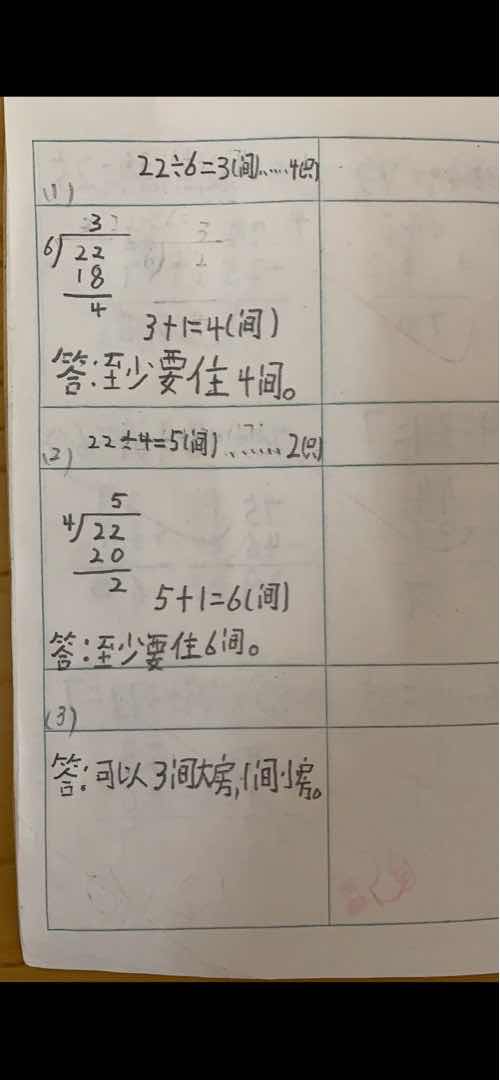 (1)
22÷6=3(间)……4(只)
3
6)22
18
4
3+1=4(间)
答:至少要住4间。
(2) 22÷4=5(间)……2(只)
5
4)22
20
2
5+1=6(间)
答:至少要住6间。
(3)
答:可以3间大房,1间小房。